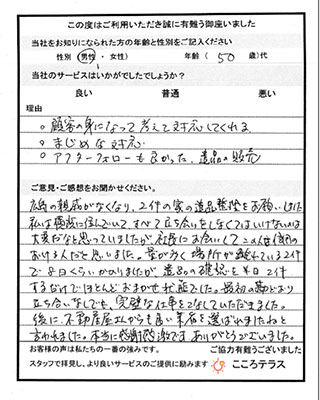 この度はご利用いただき誠に有難う御座いました
当社をお知りになられた方の年齢と性別をご記入ください
性別 (男性 ・ 女性) 年齢 ( 50 歳)代
当社のサービスはいかがでしたでしょうか?
良い 普通 悪い
理由
○ 顧客の身になって考えて対応してくれる
○ まじめな対応
○ アフターフォローも良かった、遺品の販売
ご意見・ご感想をお聞かせください。
広島の親戚がなくなり、2件の家の遺品整理をお願いした
私は横浜に住んでいて、すべて立ち会いをしなくてはいけないかは
大変だなと思っていましたが、社長にお会いしてこの人は信用の
おける人だと思いました。量が多く場所が離れている2件
で8日くらいかかりましたが 遺品の確認を半日2件
するだけでほとんどおまかせ状態でした。最初の約束どおり
立ち合いなしでも、完璧な仕事をこなしていただきました。
後に不動産屋さんからも良い業者を選ばれましたねと
言われました。本当に感謝感激です ありがとうございました。
お客様の声は私たちの一番の強みです。 ご協力有難うございました
スタッフで拝見し、より良いサービスのご提供に励みます こころテラス